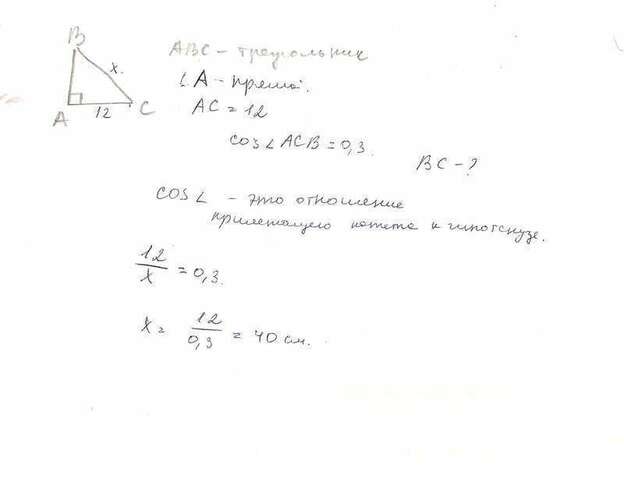 B
x.
A
12
C
ABC - треугольник
∠ A - прямой.
AC = 12
cos ∠ ACB = 0,3.
BC - ?
cos ∠ - это отношение
прилежащего катета к гипотенузе.
12/x = 0,3.
x = 12/0,3 = 40 см.